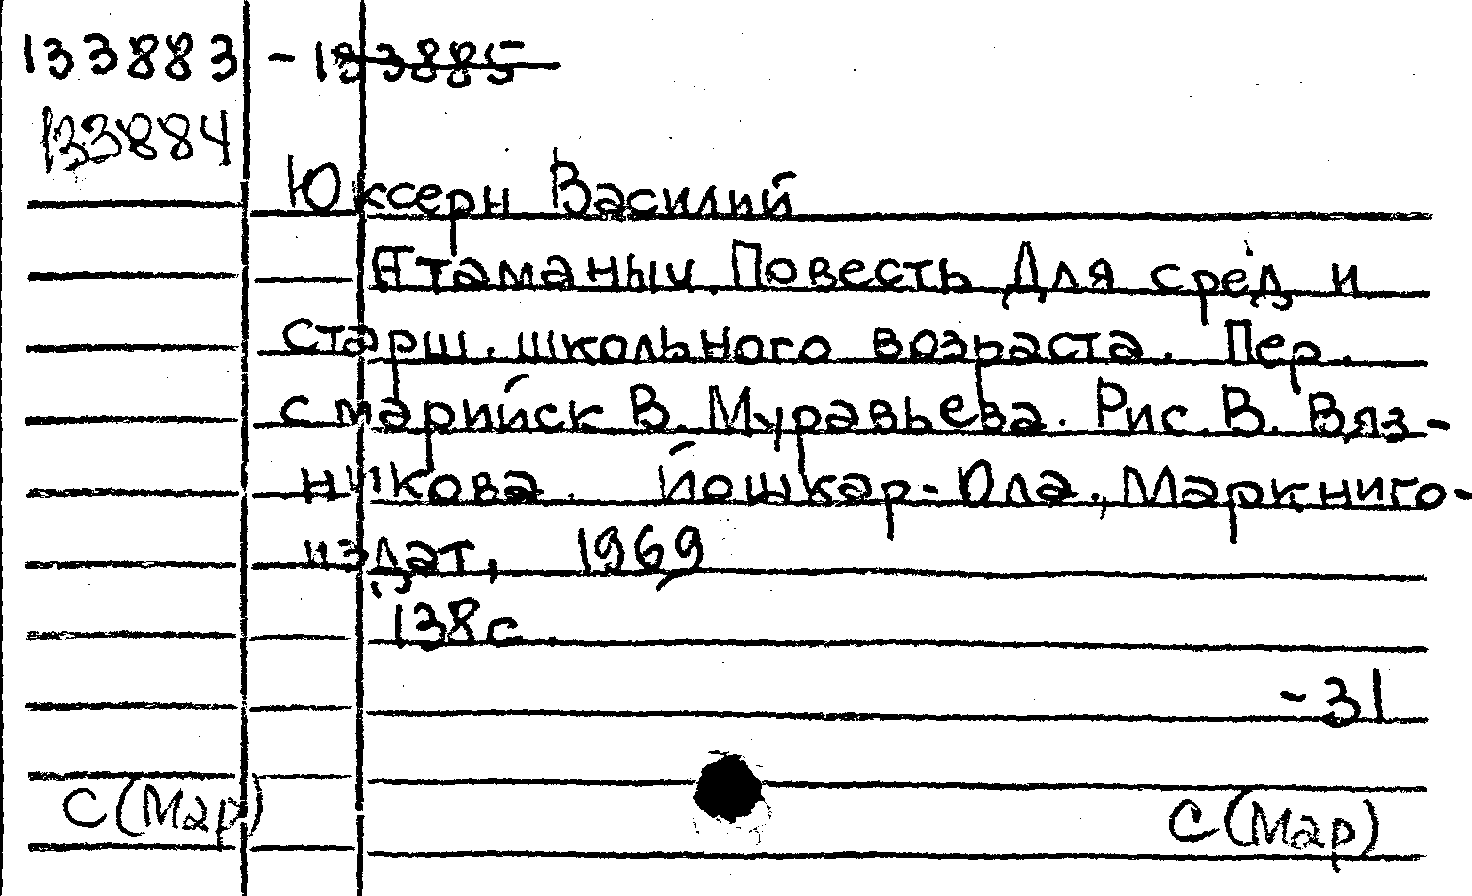 133883 - 133885
133884
Юксерн Василий
Атаманыч. Повесть Для сред и
старш. школьного возраста. Пер.
с марийск В. Муравьева. Рис. В. Вяз-
никова. Йошкар-Ола, Маркниго-
издат, 1969
138с.
-31
С(Мар) С(Мар)